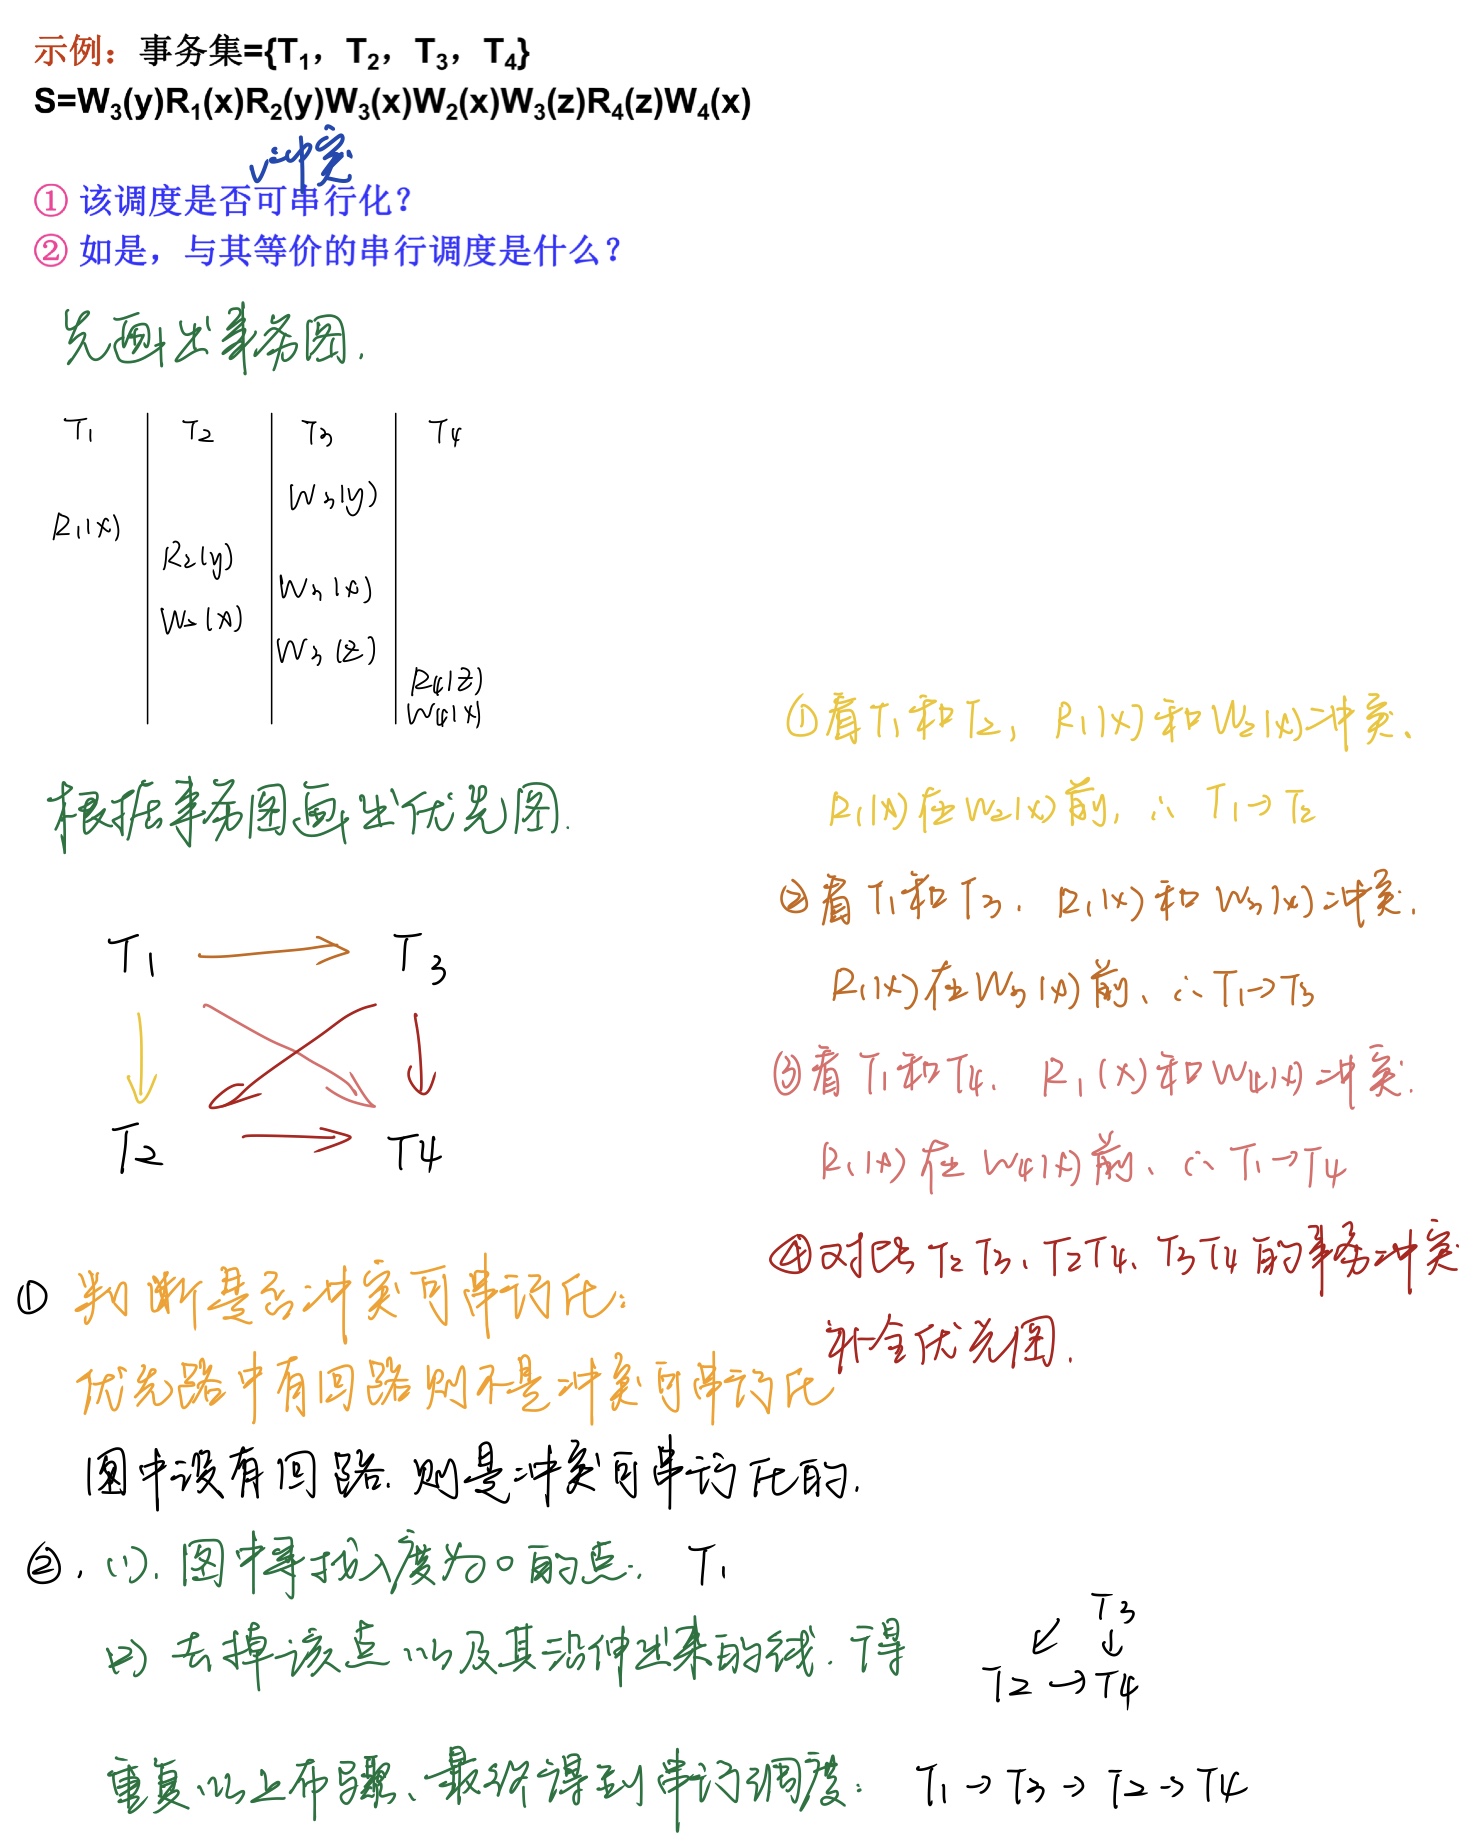 示例：事务集={T₁，T₂，T₃，T₄}
S=W₃(y)R₁(x)R₂(y)W₃(x)W₂(x)W₃(z)R₄(z)W₄(x)
✓冲突
① 该调度是否可串行化？
② 如是，与其等价的串行调度是什么？
先画出事务图.
T₁ T₂ T₃ T₄
W₃(y)
R₁(x)
R₂(y)
W₃(x)
W₂(x)
W₃(z)
R₄(z)
W₄(x)
根据事务图画出优先图.
T₁ → T₃
T₂ → T₄
①看T₁和T₂, R₁(x)和W₂(x)冲突.
R₁(x)在W₂(x)前, ∴ T₁→T₂
②看T₁和T₃. R₁(x)和W₃(x)冲突.
R₁(x)在W₃(x)前、∴ T₁→T₃
③看T₁和T₄. R₁(x)和W₄(x)冲突.
R₁(x)在W₄(x)前、∴ T₁→T₄
④对比T₂T₃、T₂T₄、T₃T₄的事务冲突
补全优先图.
① 判断是否冲突可串行化:
优先路中有回路则不是冲突可串行化
图中没有回路.则是冲突可串行化的.
②. (1). 图中寻找入度为0的点: T₁
(2) 去掉该点以及其沿伸出来的线.得
T₃
↙ ↓
T₂ → T₄
重复以上布骤、最终得到串行调度: T₁→T₃→T₂→T₄